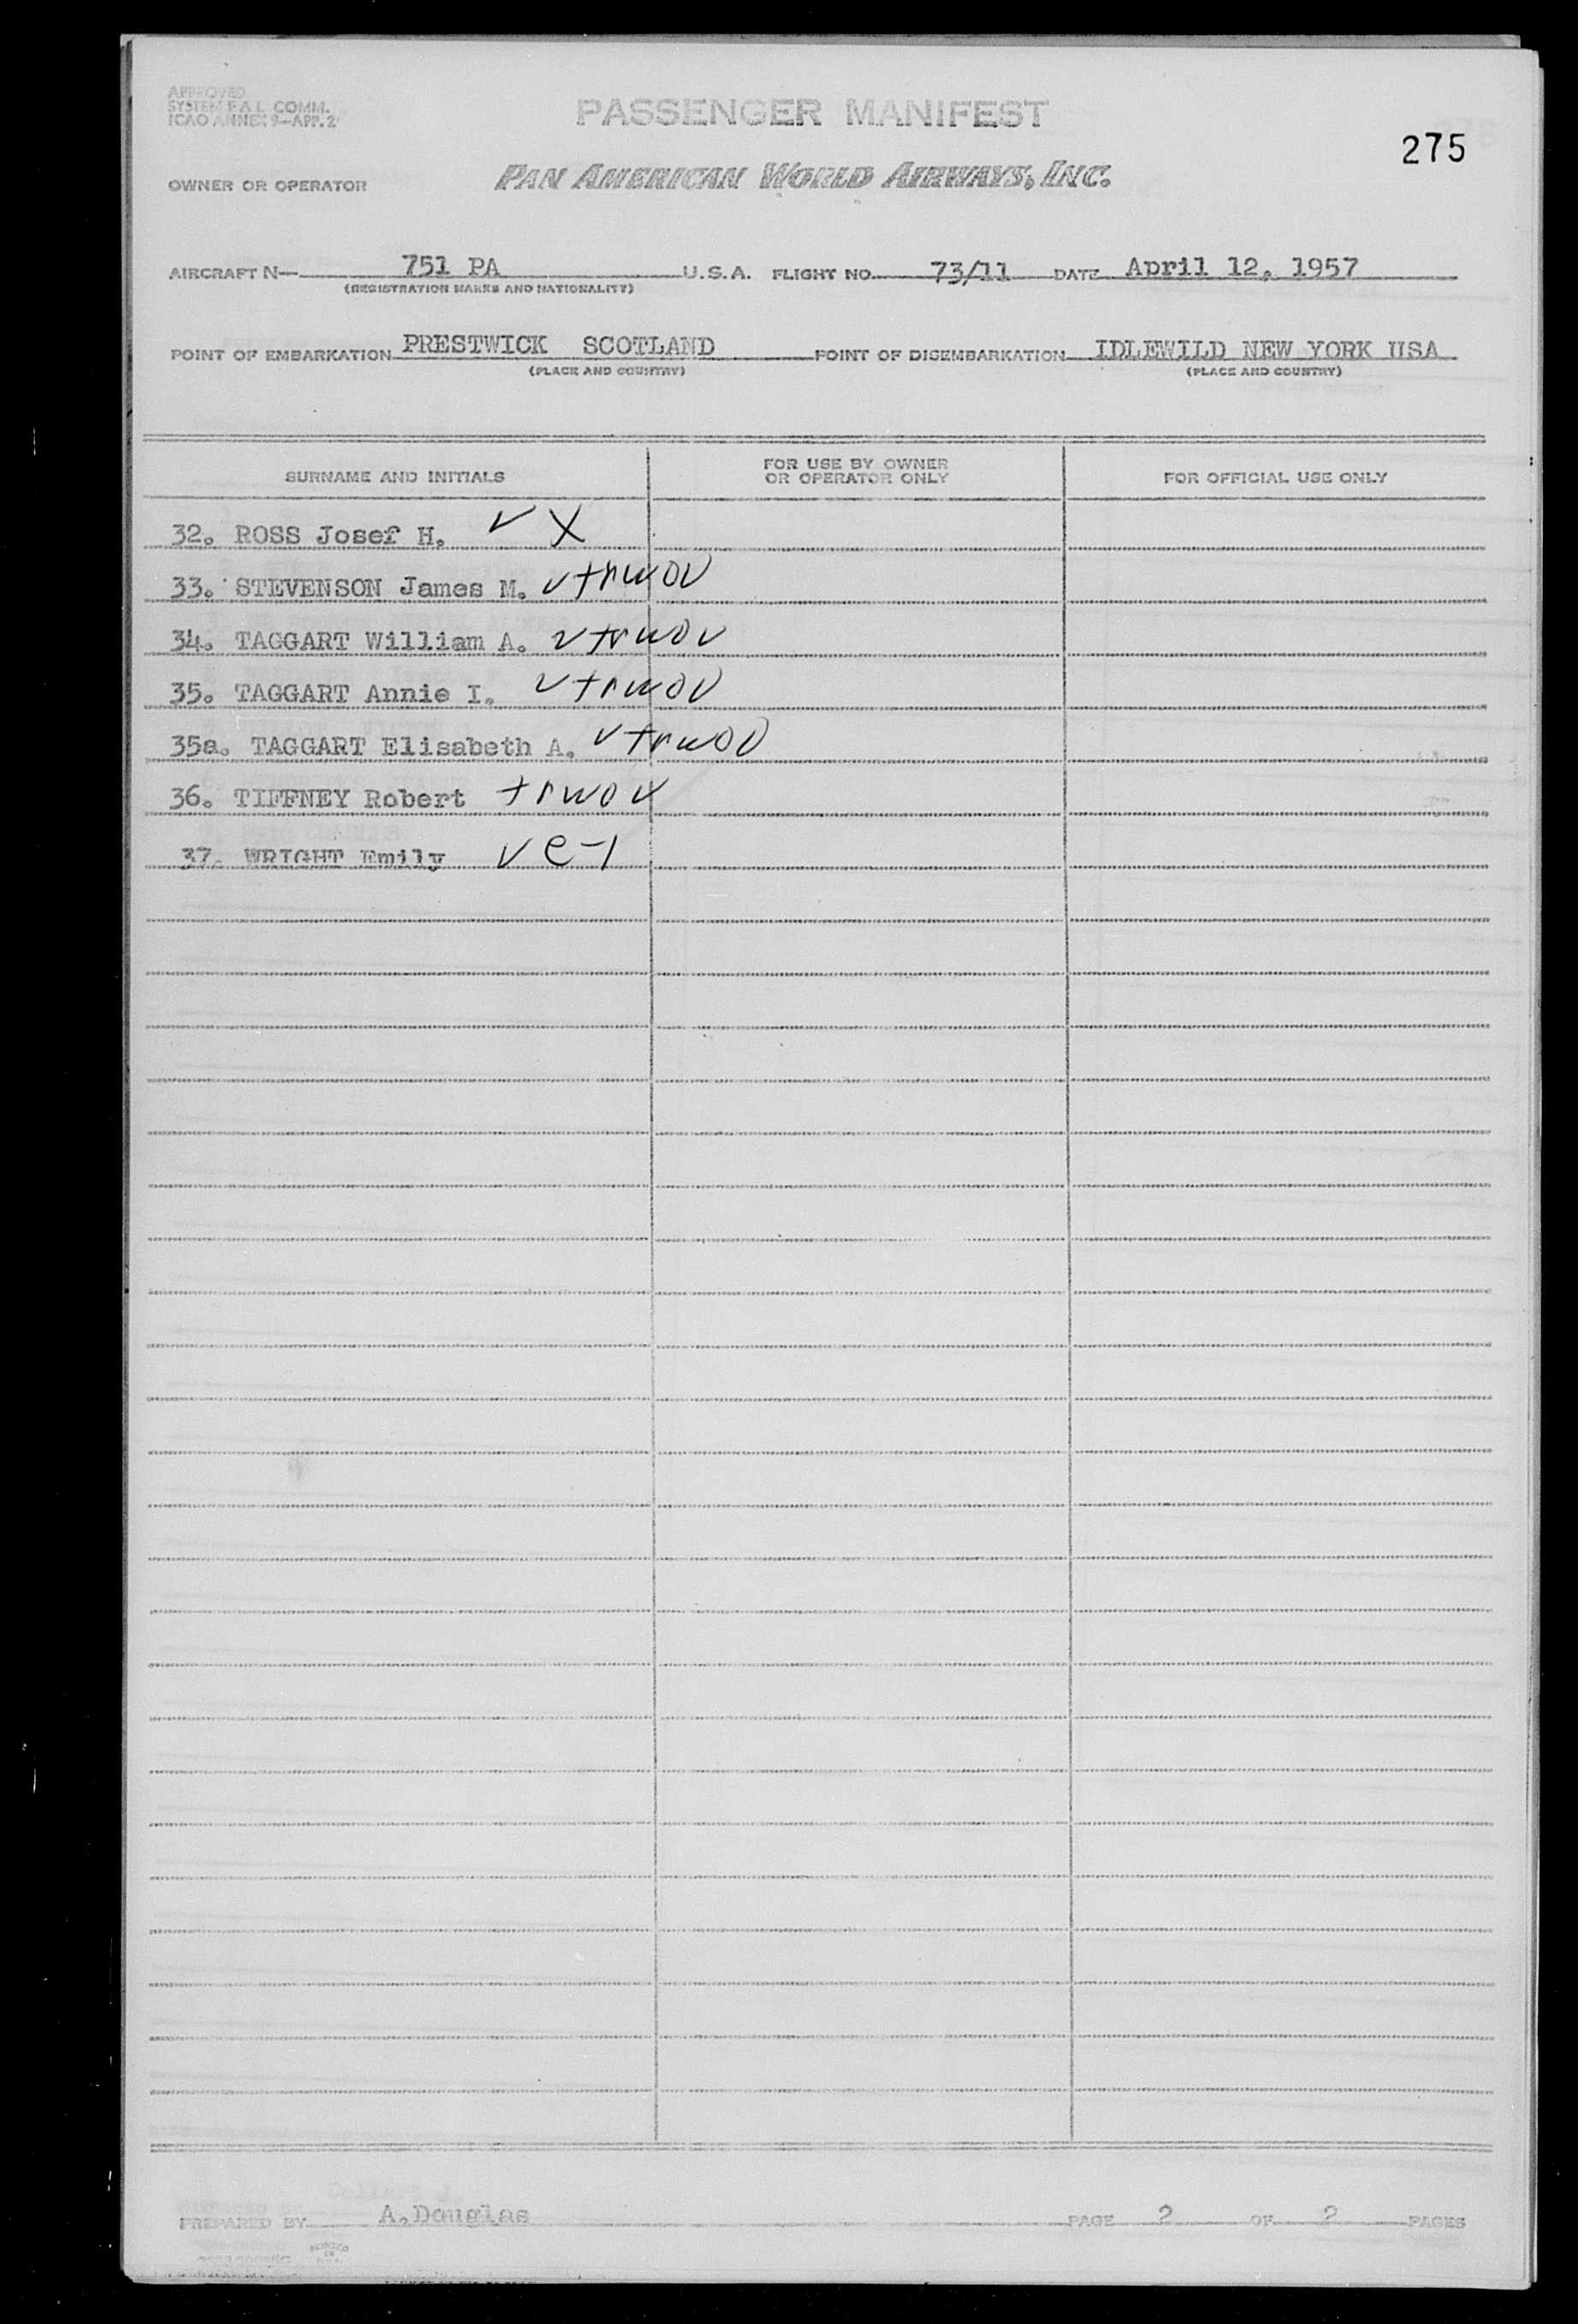 APPROVED
SYSTEM F.A.L. COMM.
ICAO ANNEX 9—APP. 2
PASSENGER MANIFEST
275
OWNER OR OPERATOR PAN AMERICAN WORLD AIRWAYS, INC.
AIRCRAFT N— 751 PA U.S.A. FLIGHT NO. 73/11 DATE April 12, 1957
(REGISTRATION MARKS AND NATIONALITY)
POINT OF EMBARKATION PRESTWICK SCOTLAND POINT OF DISEMBARKATION IDLEWILD NEW YORK USA
(PLACE AND COUNTRY) (PLACE AND COUNTRY)
SURNAME AND INITIALS FOR USE BY OWNER OR OPERATOR ONLY FOR OFFICIAL USE ONLY
32. ROSS Josef H. ✓ X
33. STEVENSON James M. ✓ trwov
34. TAGGART William A. ✓ trwov
35. TAGGART Annie I. ✓ trwov
35a. TAGGART Elisabeth A. ✓ trwov
36. TIFFNEY Robert trwov
37. WRIGHT Emily ✓ e-1
PREPARED BY A. Douglas PAGE 2 OF 2 PAGES